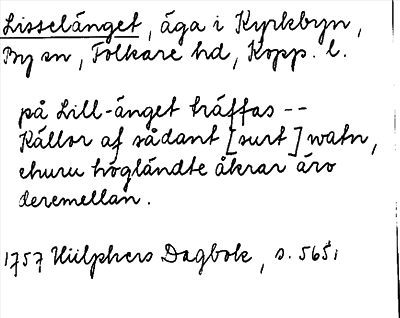 Lisselänget, äga i Kyrkbyn,
By sn, Folkare hd, Kopp. l.
på Lill-änget träffas --
Källor af sådant [surt] watn,
ehuru högländte åkrar äro
deremellan.
1757 Hülphers Dagbok, s. 565.